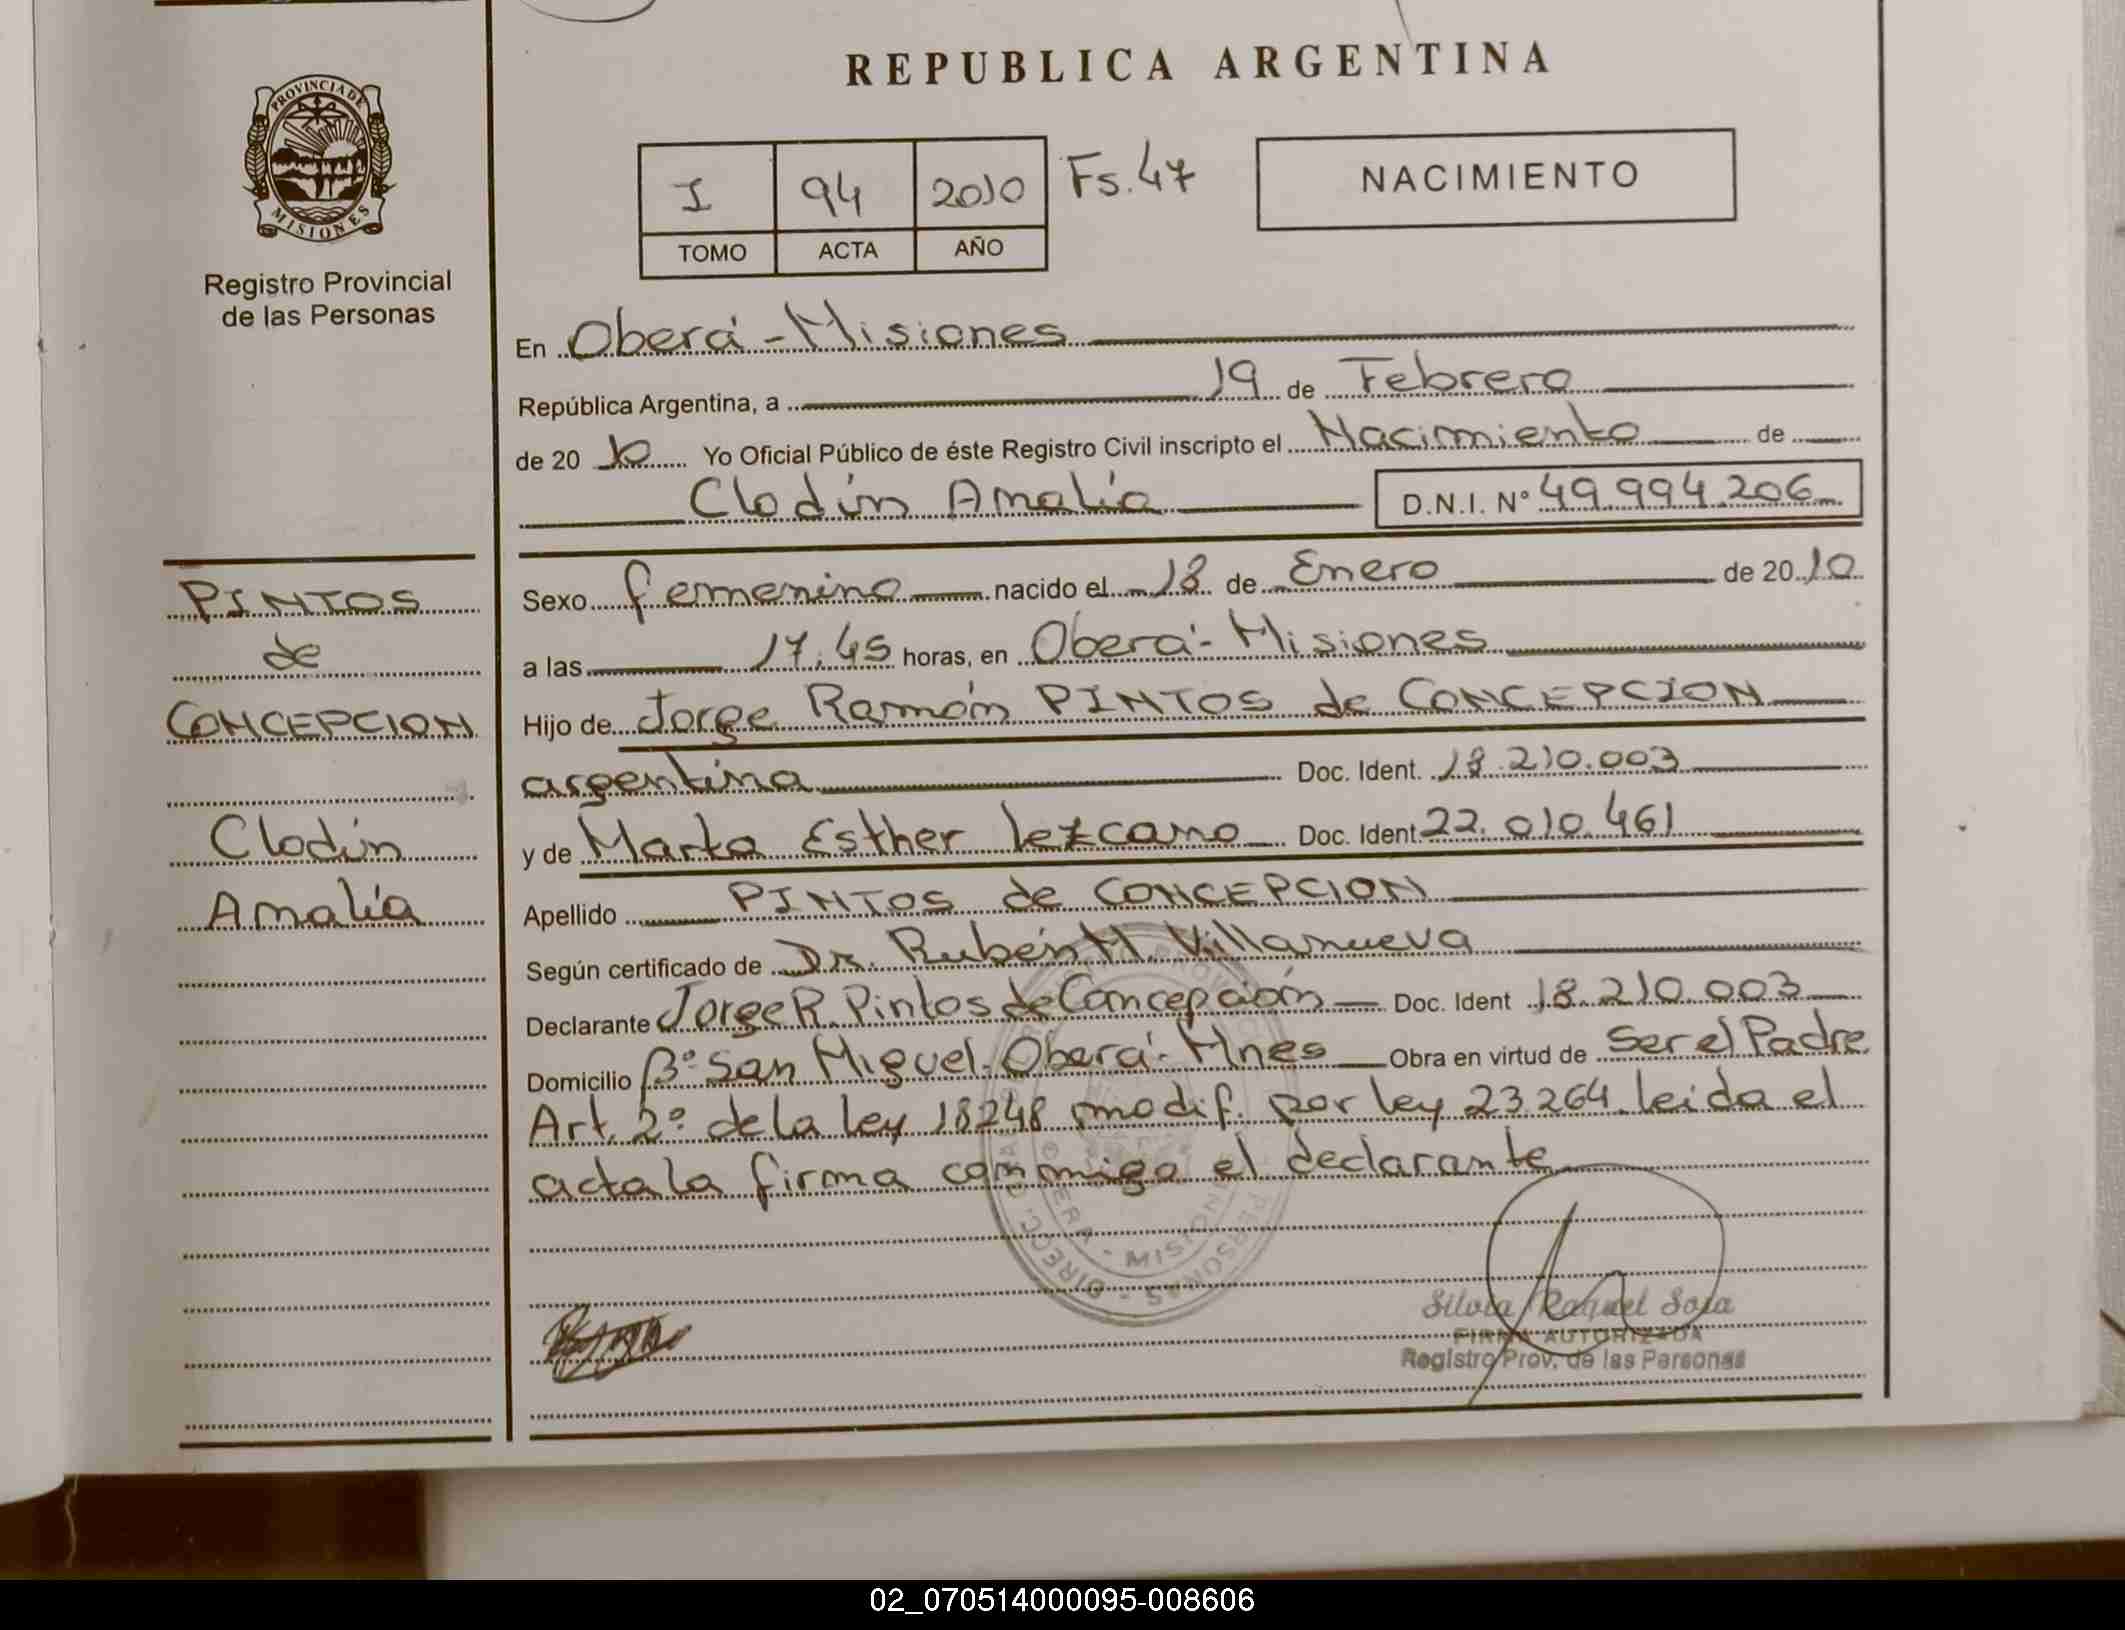 REPUBLICA ARGENTINA
PROVINCIA DE
MISIONES
Registro Provincial
de las Personas
I 94 2010 Fs. 47
TOMO ACTA AÑO
NACIMIENTO
En Oberá - Misiones
República Argentina, a 19 de Febrero
de 20 10 Yo Oficial Público de éste Registro Civil inscripto el Nacimiento de
Clodín Amalía D.N.I. Nº 49.994.206
Sexo femenino nacido el 18 de Enero de 20 10
a las 17,45 horas, en Oberá - Misiones
Hijo de Jorge Ramón PINTOS de CONCEPCION
argentina Doc. Ident. 18.210.003
y de Marta Esther lezcano Doc. Ident. 22.010.461
Apellido PINTOS de CONCEPCION
Según certificado de Dr. Rubén H. Villanueva
Declarante Jorge R. Pintos de Concepción Doc. Ident 18.210.003
Domicilio Bº San Miguel. Oberá - Mnes Obra en virtud de Ser el Padre
Art. 2º de la ley 18248 modif. por ley 23.264. leida el
acta la firma conmigo el declarante
PINTOS
de
CONCEPCION
Clodín
Amalía
MISIONES
PERSONAS
Silvia Raquel Sosa
FIRMA AUTORIZADA
Registro Prov. de las Personas
02_070514000095-008606